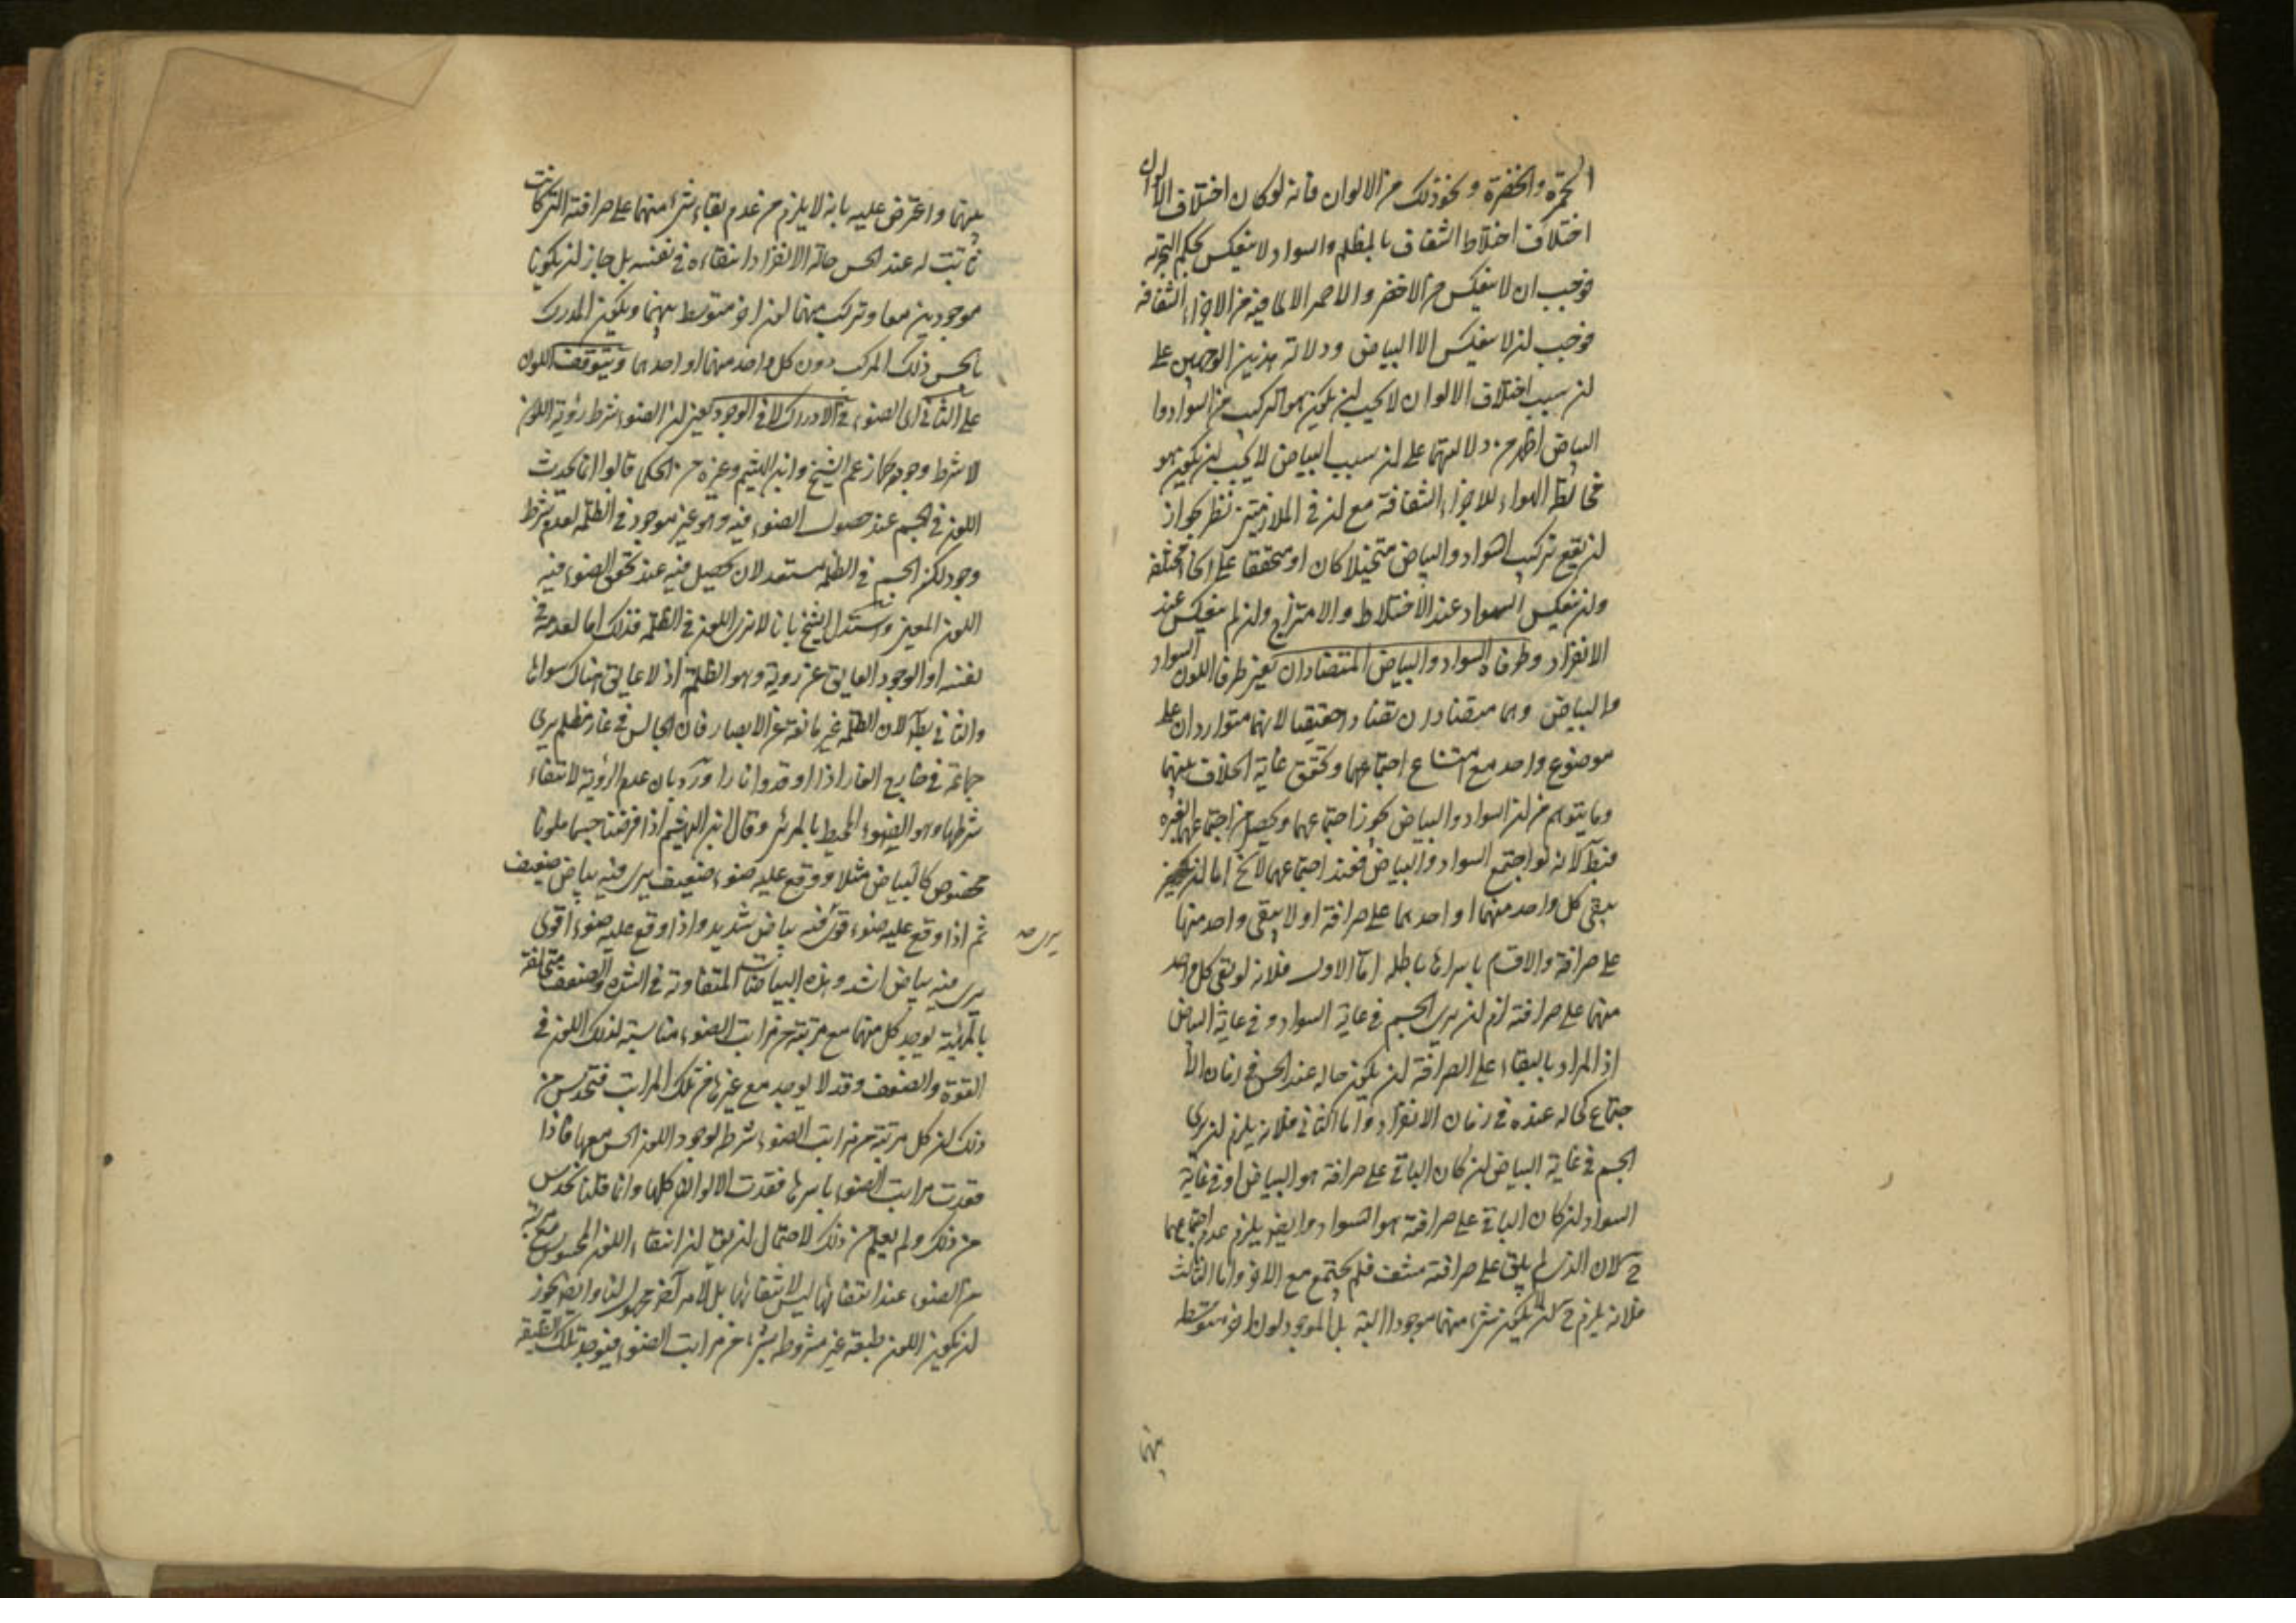 الحمرة والخضرة ونحو ذلك من الالوان فانه لو كان اختلاف الالوان
اختلاف اختلاط الشفاف بالمظلم والسواد لا ينعكس بحكم التجربة
فوجب ان لا ينعكس من الاخضر والاحمر الا لما فيه من الاجزاء الشفافة
فوجب ان لا ينعكس الا البياض ودلالة هذين الوجهين على
ان سبب اختلاف الالوان لا يجب ان يكون هو التركيب من السواد وا
البياض اظهر من دلالتهما على ان سبب البياض لا يجب ان يكون هو
مخالطة الهواء للاجزاء الشفافة مع ان في الملازمتين نظر لجواز
ان يقع تركيب السواد والبياض متخيلا كان او متحققا على انحاء مختلفة
وان ينعكس السواد عند الاختلاط والامتزاج وان لم ينعكس عند
الانفراد وطرفاه السواد والبياض المتضادان يعني طرفا اللون السواد
والبياض وهما متضادان تضادا حقيقيا لانهما متواردان على
موضوع واحد مع امتناع اجتماعهما وتحقق غاية الخلاف بينهما
وما يتوهم من ان السواد والبياض يجوز اجتماعهما ويحصل من اجتماعهما الغبرة
فبط لانه لو اجتمع السواد والبياض فعند اجتماعهما لا يخ اما ان
يبقى كل واحد منهما او احدهما على صرافته او لا يبقى واحد منهما
على صرافته والاقسام باسرها باطلة اما الاول فلانه لو بقى كل واحد
منهما على صرافته لزم ان يرى الجسم في غاية السواد وفي غاية البياض
اذ المراد بالبقاء على الصرافة ان يكون حاله عند الحس في زمان الا
جتماع كحاله عنده في زمان الانفراد واما الثاني فلانه يلزم ان يرى
الجسم في غاية البياض ان كان الباقي على صرافته هو البياض او في غاية
السواد ان كان الباقي على صرافته هو السواد وايضا يلزم عدم اجتماعهما
ح لان الذي لم يبق على صرافته منتف فلم يجتمع مع الاخر واما الثالث
فلانه يلزم ح ان لا يكون شيء منهما موجودا البتة بل الموجود لون اخر متوسط
بينهما
بينهما واعترض عليه بانه لا يلزم من عدم بقاء شيء منهما على صرافته التي كانت
ثابت له عند الحس حالة الانفراد انتفاءه في نفسه بل جاز ان يكونا
موجودين معا وتركب منهما لون اخر متوسط بينهما ويكون المدرك
بالحس ذلك المركب دون كل واحد منهما او احدهما ويتوقف اللون
على الثاني اى الضوء في الادراك لا في الوجود يعني ان الضوء شرط رؤية اللون
لا شرط وجوده كما زعم الشيخ وابن الهيثم وغيره من الحكماء قالوا انما يحدث
اللون في الجسم عند حصول الضوء فيه وهو غير موجود في الظلمة لعدم شرط
وجوده لكن الجسم في الظلمة مستعد لان يحصل فيه عند تحقق الضوء فيه
اللون المعين واستدل الشيخ بانا لا نرى اللون في الظلمة فذلك اما لعدمه في
نفسه او لوجود العايق عن رويته وهو الظلمة اذ لا عايق هناك سواها
والثاني بط لان الظلمة غير مانعة عن الابصار فان الجالس في غار مظلم يرى
جماعة في خارج الغار اذا اوقدوا نارا ورد بان عدم الرؤية لانتفاء
شرطها وهو الضوء المحيط بالمرئي وقال ابن الهيثم اذا فرضنا جسما ملونا
مخصوص كالبياض مثلا ووقع عليه ضوء ضعيف يرى فيه بياض ضعيف
ثم اذا وقع عليه ضوء قوى فيه بياض شديد واذا وقع عليه ضوء اقوى
يرى صح
يرى فيه بياض اشد وهذه البياضات المتفاوتة في الشدة والضعف متخالفة
بالمهية يوجد كل منها مع مرتبة من مراتب الضوء مناسبة لذلك اللون في
القوة والضعف وقد لا يوجد مع غيرها من تلك المراتب فتحدس من
ذلك ان كل مرتبة من مراتب الضوء شرط لوجود اللون الحس معها فاذا
فقدت مراتب الضوء باسرها فقدت الالوان كلها وانما قلنا تحدس
من ذلك ولم يعلم من ذلك لاحتمال ان يق ان انتفاء اللون المحسوس مع مرتبة
من الضوء عند انتفائها ليس لانتفائها بل لامر آخر مجهول لنا وايضا يجوز
ان يكون اللون طبقة غير مشروطة بشيء من مراتب الضوء فيوجد تلك الطبقة